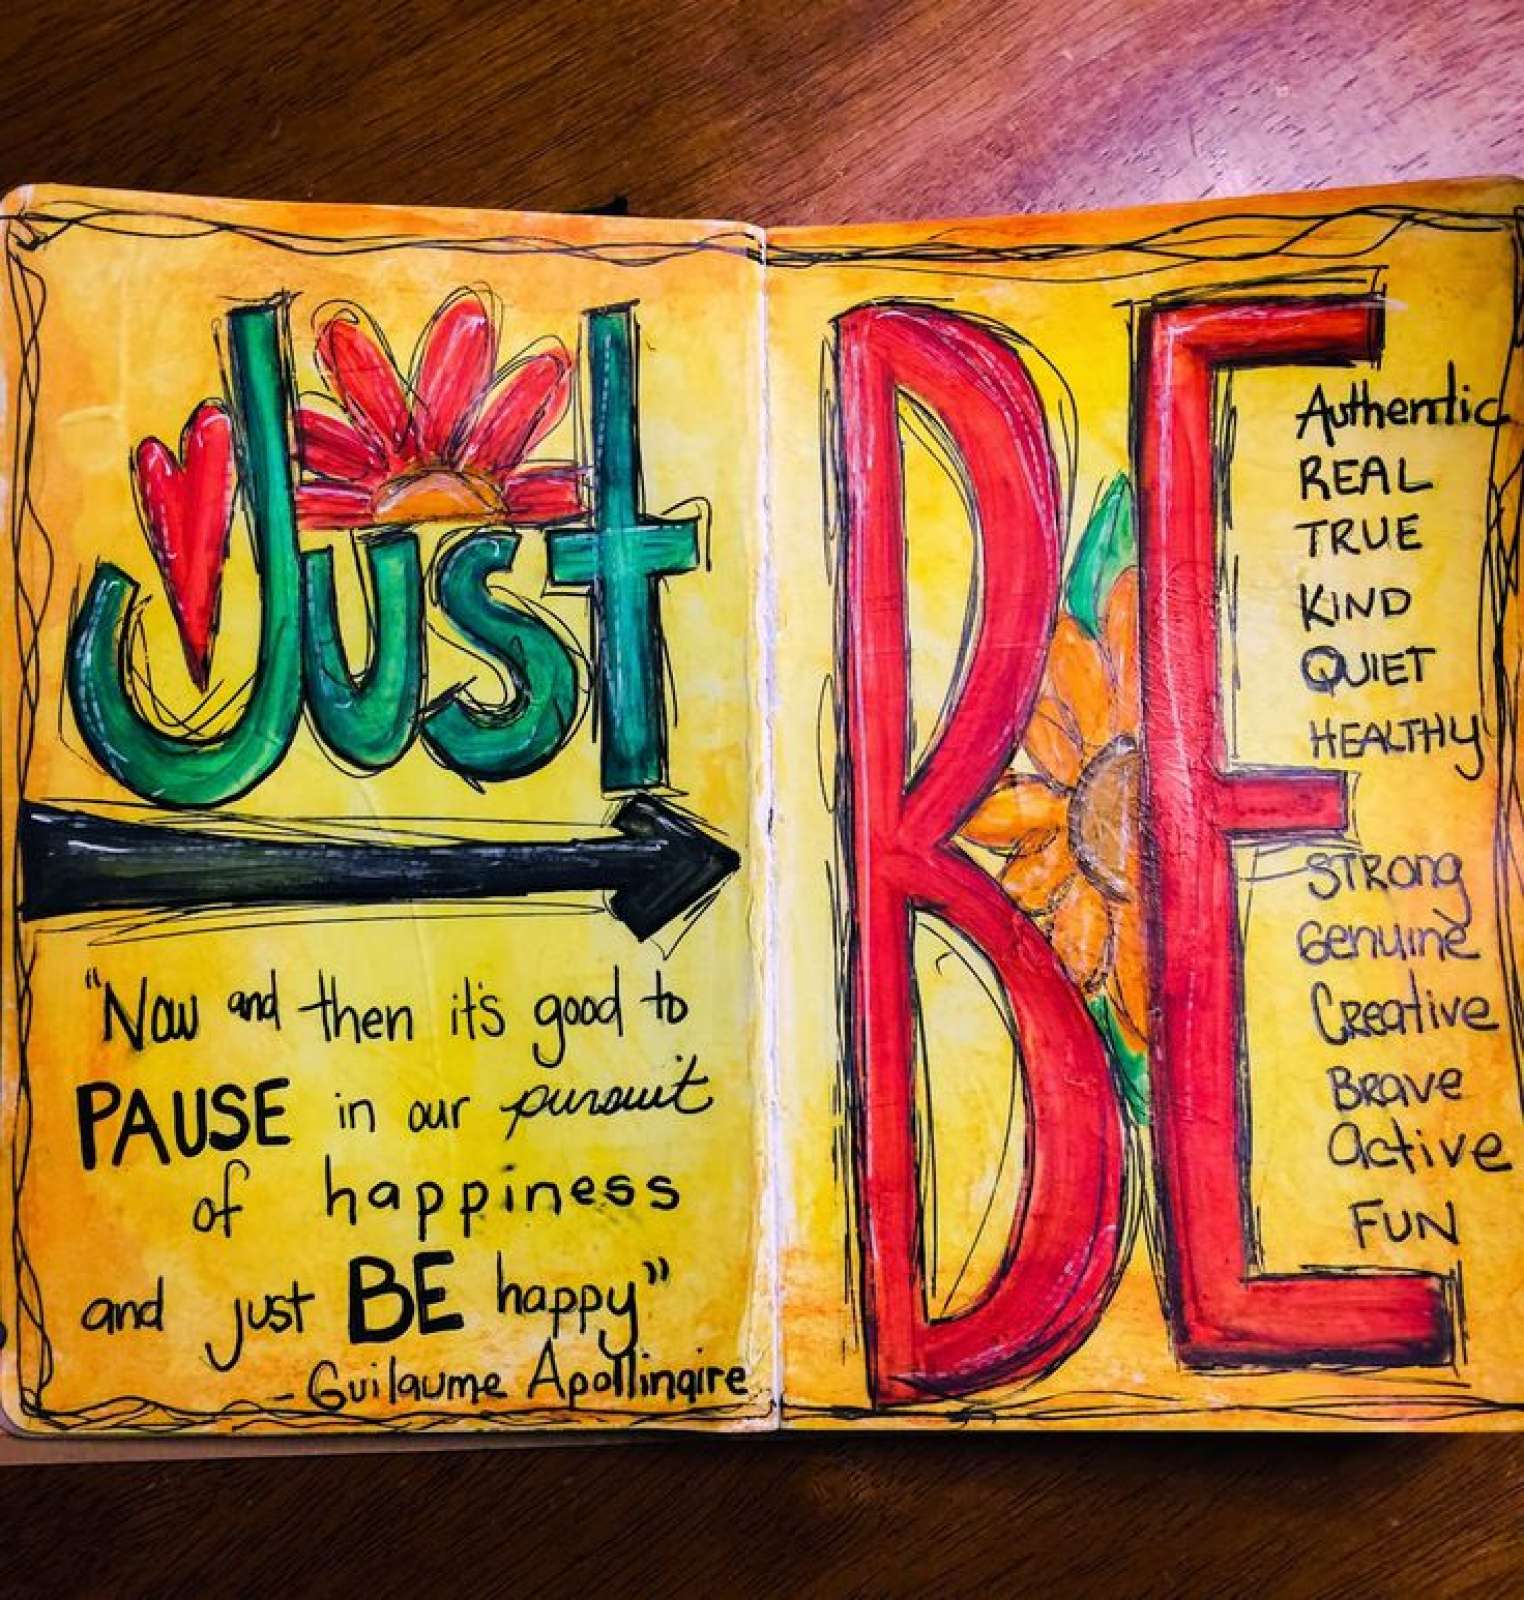 Just
"Now and then it's good to
PAUSE in our pursuit
of happiness
and just BE happy"
- Guilaume Apollinaire
BE
Authentic
REAL
TRUE
KIND
QUIET
HEALTHY
STRONG
Genuine
Creative
BRAVE
Active
FUN